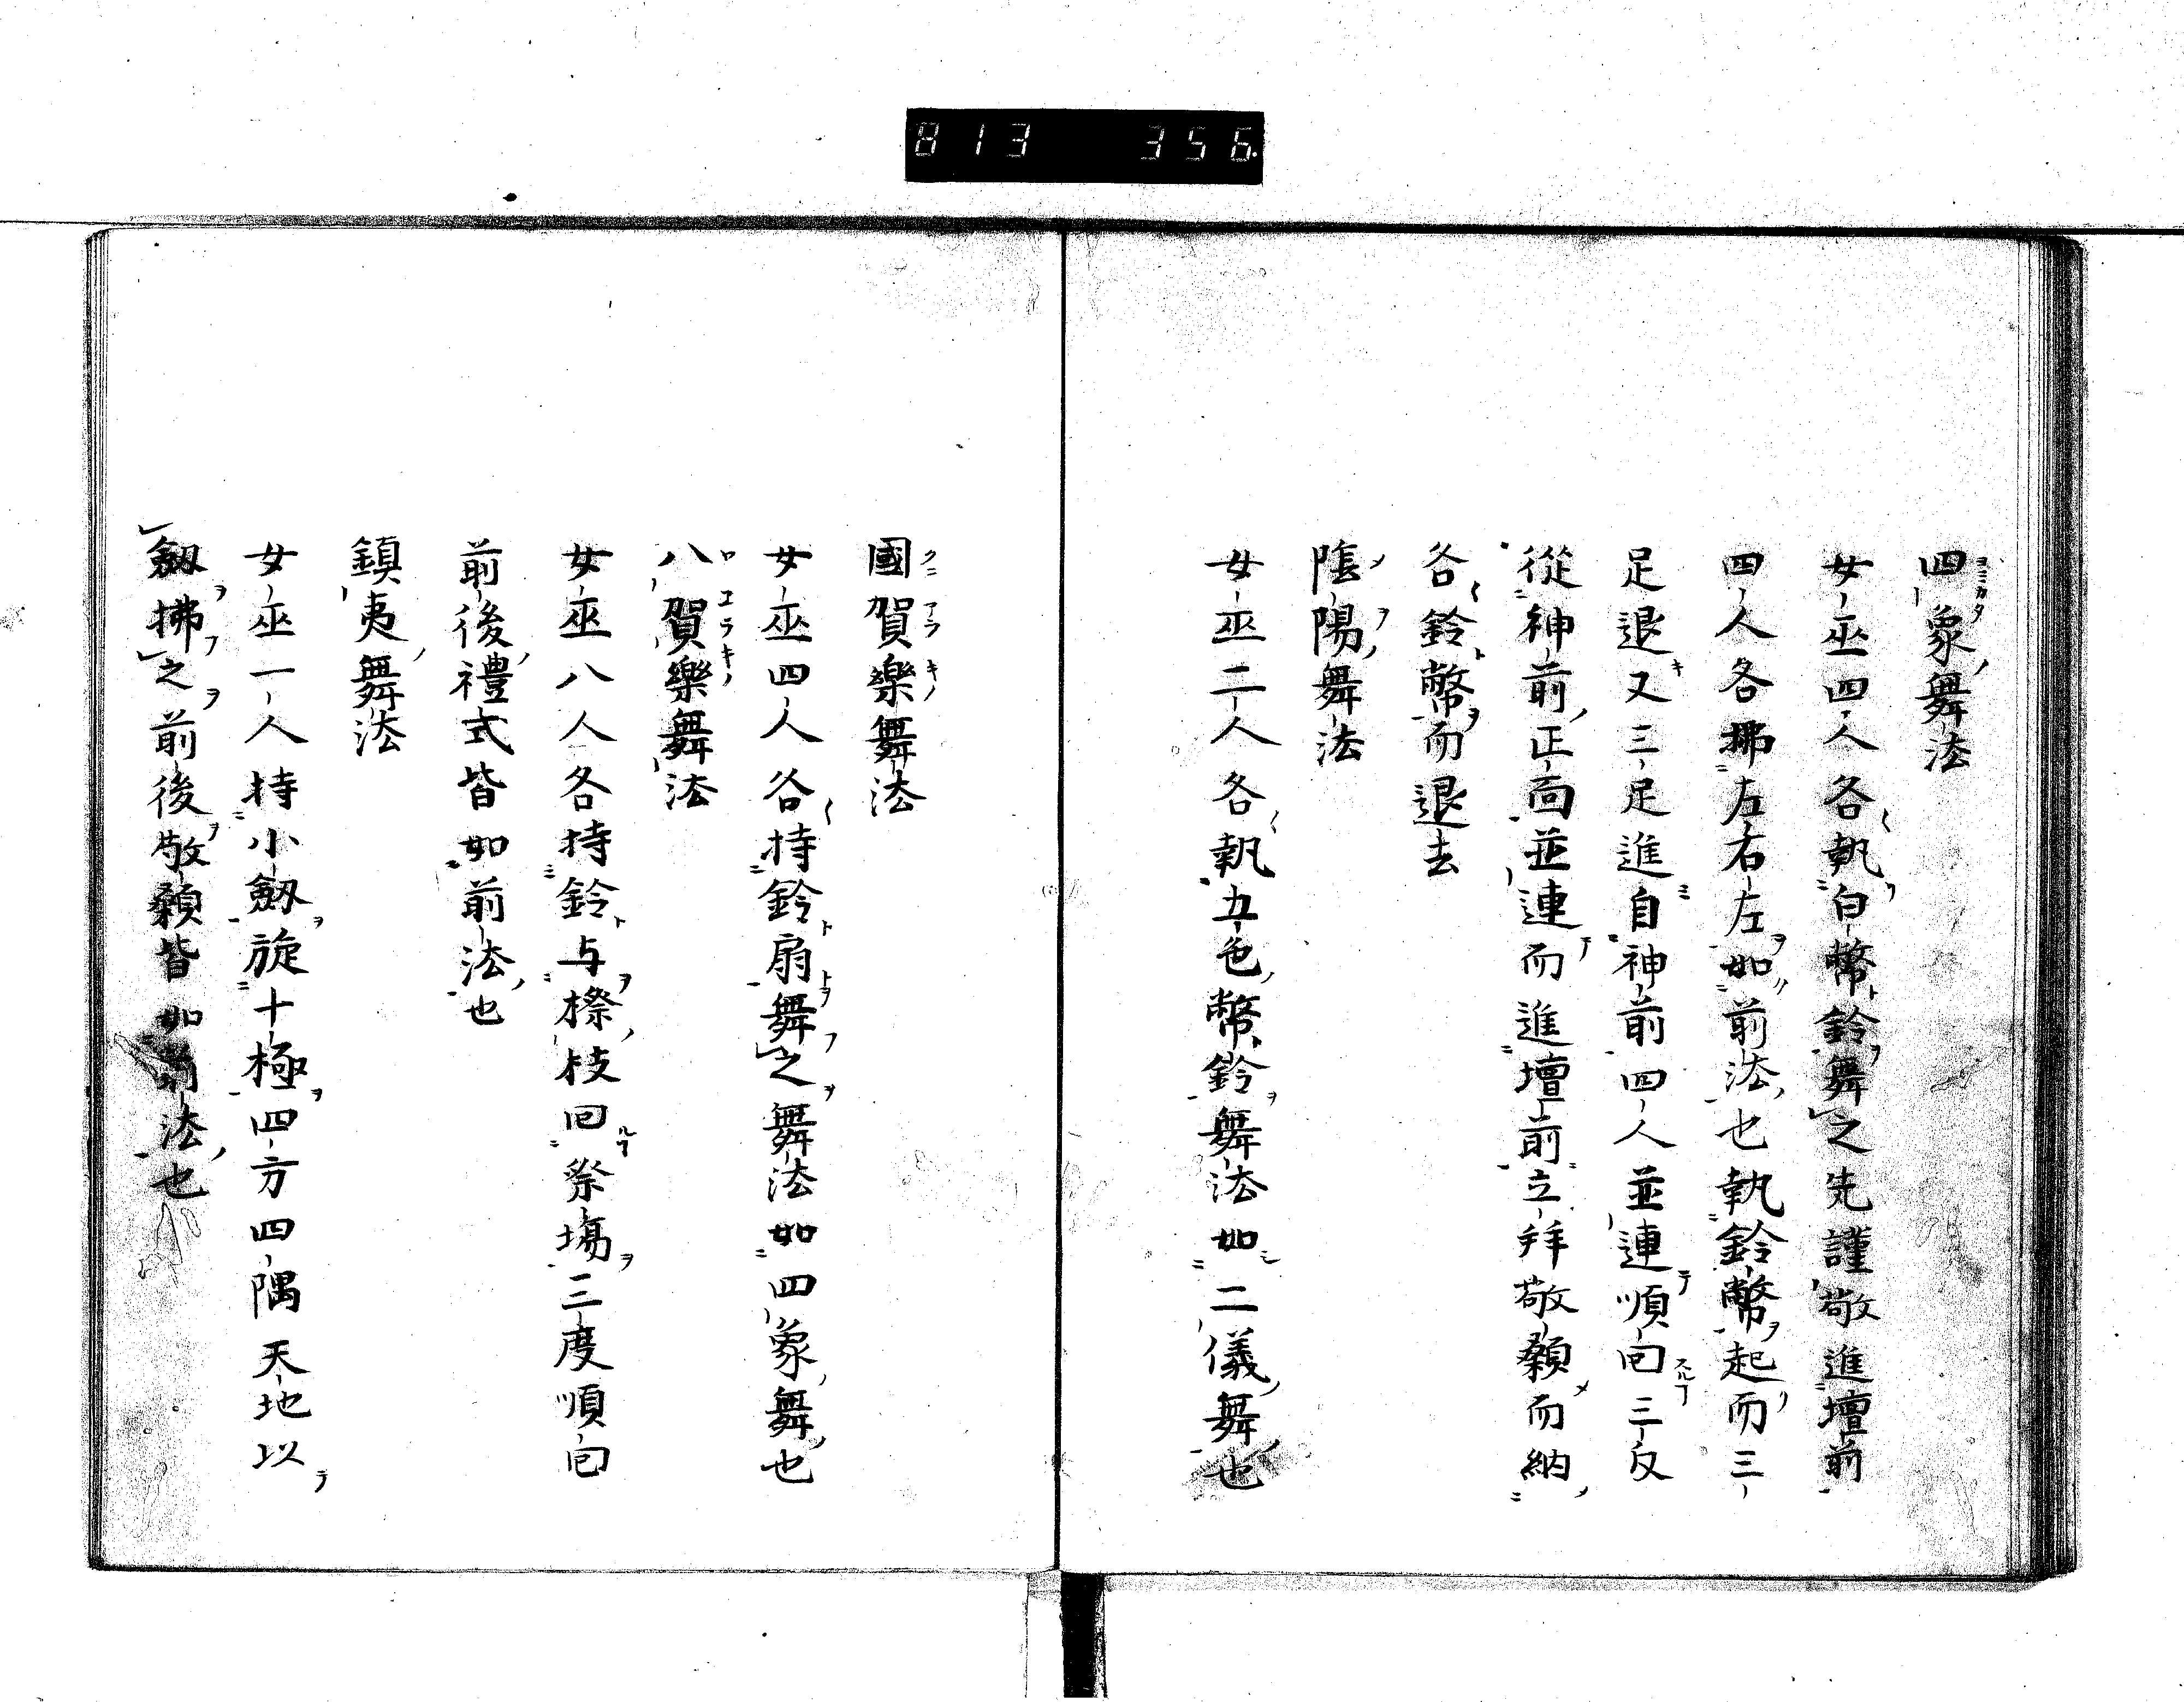 813 356
四象舞法
女巫四人各執白幣鈴舞之先謹敬進壇前
四人各拂左右左如前法也執鈴幣起而三
足退又三足進自神前四人並連順回三反
從神前正面並連而進壇前立拜敬願而納
各鈴幣而退去
陰陽舞法
女巫二人各執五色幣鈴舞法如二儀舞也
國賀樂舞法
女巫四人各持鈴扇舞之舞法如四象舞也
八賀樂舞法
女巫八人各持鈴与榊枝回祭場三度順回
前後禮式皆如前法也
鎮夷舞法
女巫一人持小劔旋十極四方四隅天地以
劔拂之前後敬願皆如前法也